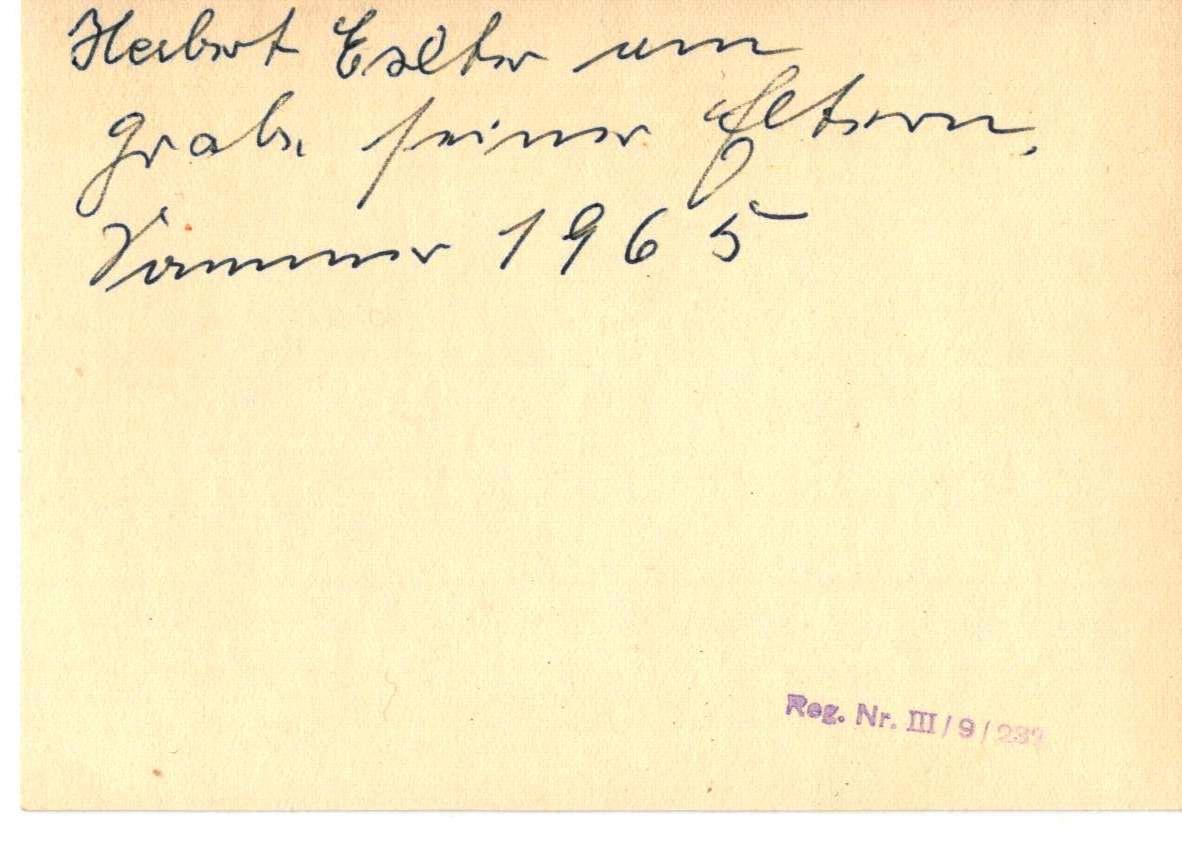 Herbert Exlter am
Grabe seiner Eltern,
Sommer 1965
Reg. Nr. III/9/232